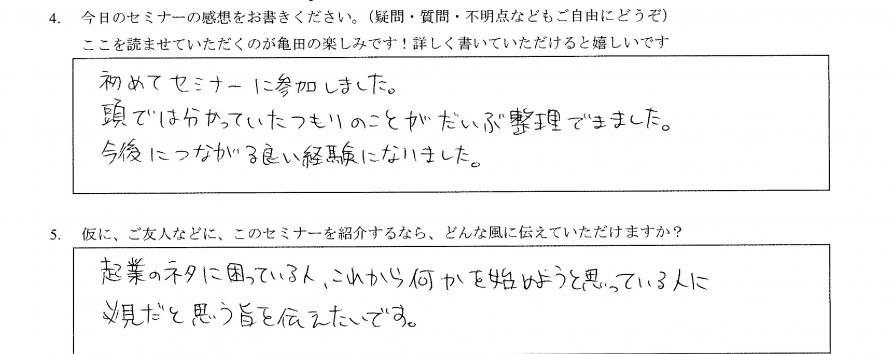 4. 今日のセミナーの感想をお書きください。（疑問・質問・不明点などもご自由にどうぞ）
ここを読ませていただくのが亀田の楽しみです！詳しく書いていただけると嬉しいです
初めてセミナーに参加しました。
頭では分かっていたつもりのことがだいぶ整理できました。
今後につながる良い経験になりました。
5. 仮に、ご友人などに、このセミナーを紹介するなら、どんな風に伝えていただけますか？
起業のネタに困っている人、これから何かを始めようと思っている人に
必見だと思う旨を伝えたいです。